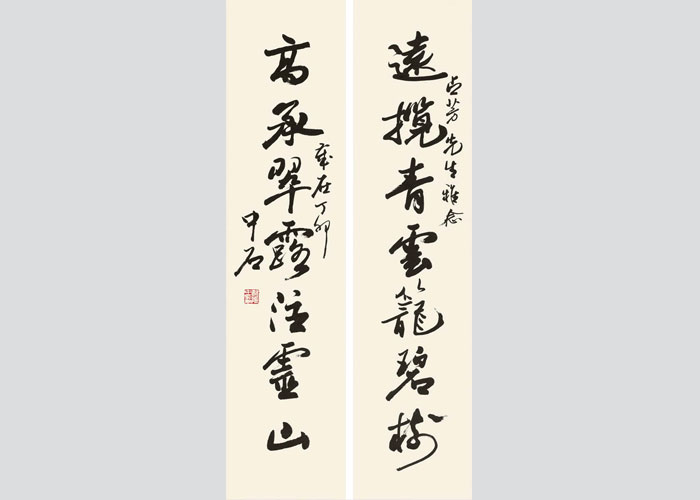 遠攬青雲籠碧樹
芳先生雅念
高承翠露注靈山
歲在丁卯
中石